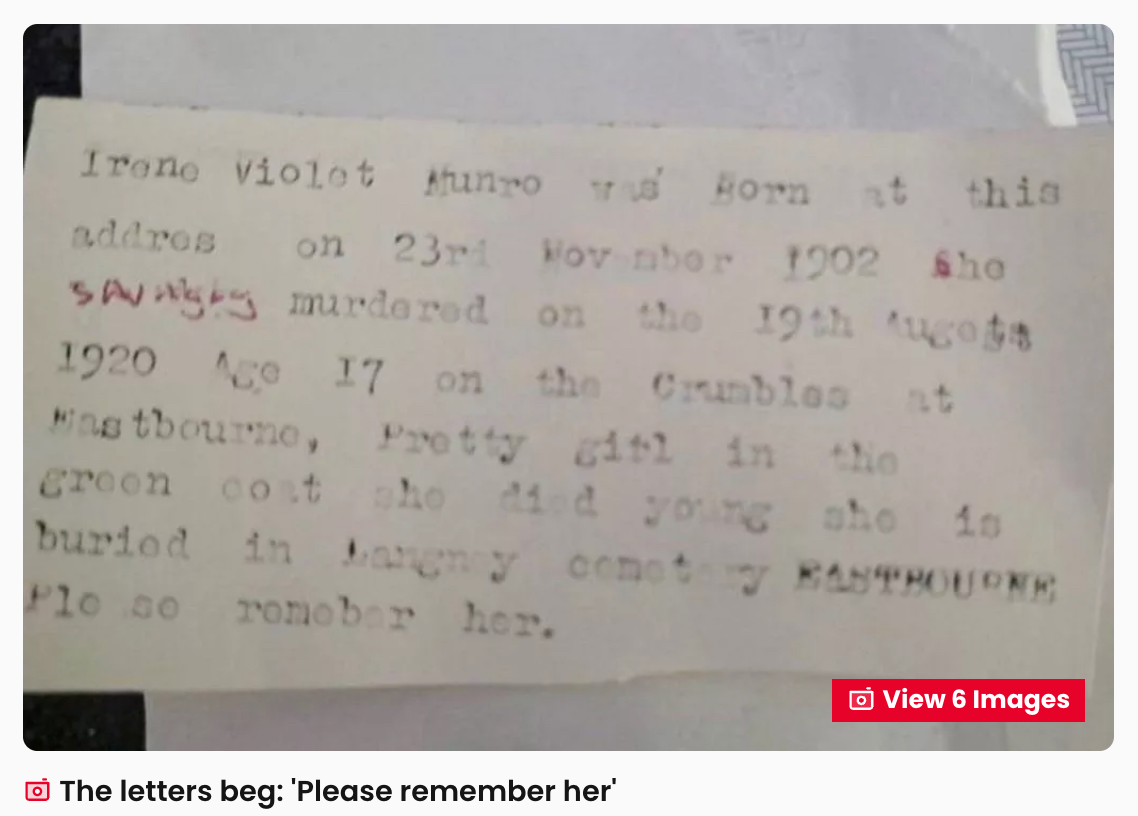 Irene Violet Munro was Born at this
addres on 23rd November 1902 She
murdered on the 19th
1920 Age 17 on the Crumbles at
Eastbourne, Pretty girl in the
green coat she died young she is
buried in Langney cemetry EASTBOURNE
Please remeber her.
View 6 Images
The letters beg: 'Please remember her'